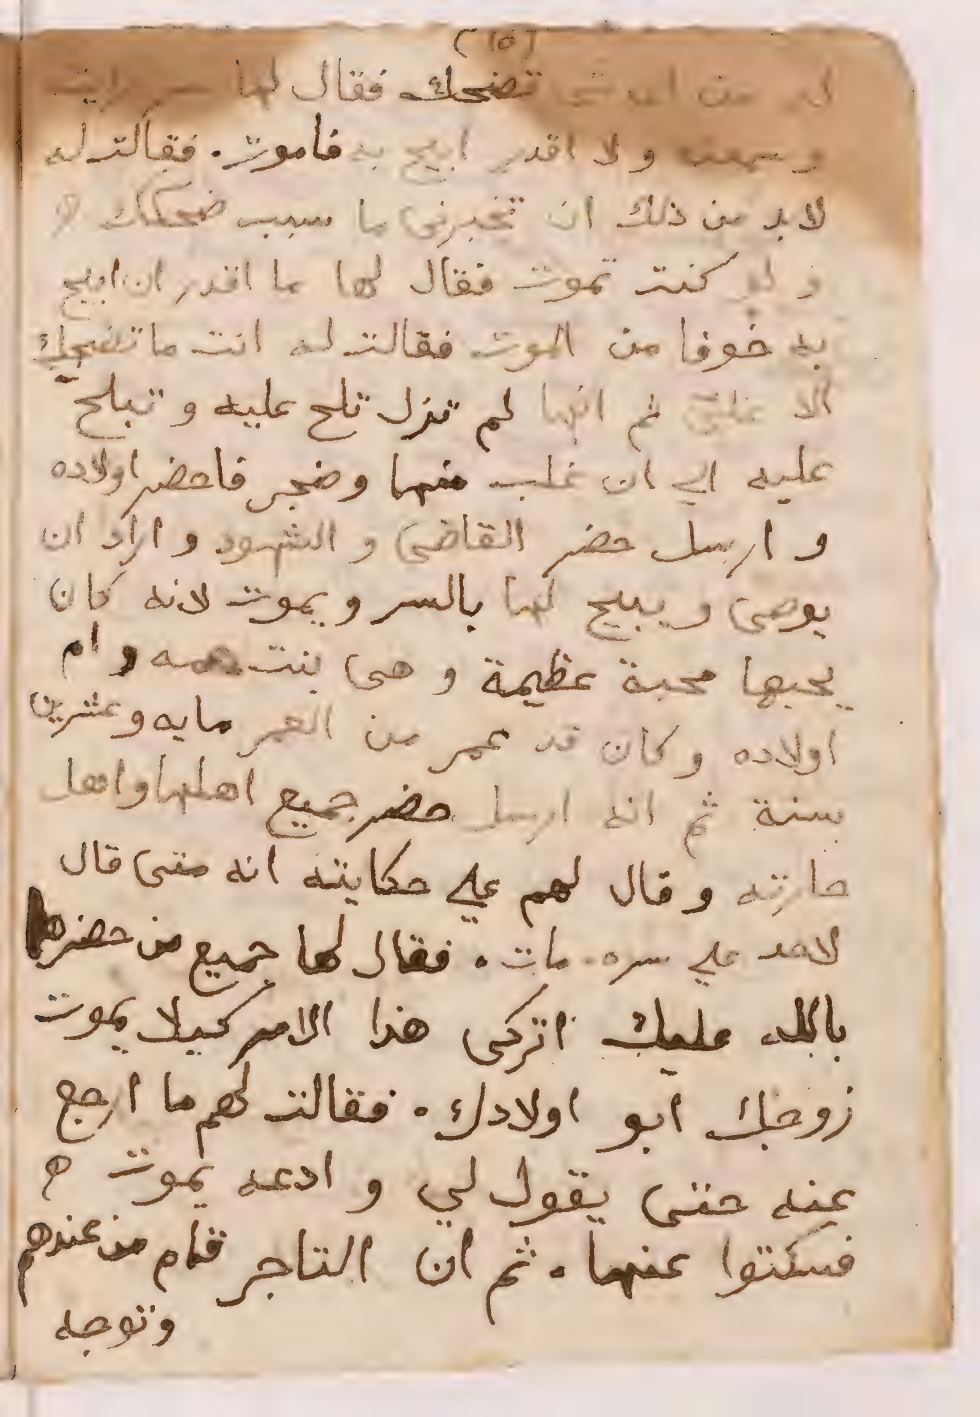 (١٥)
له من اي شي تضحك فقال لها سر رايته
وسمعته ولا اقدر ابيح به فاموت . فقالت له
لابد من ذلك ان تخبرني ما سبب ضحكك
ولو كنت تموت فقال لها ما اقدر ان ابيح
به خوفا من الموت فقالت له انت ما تضحك
الا علي ثم انها لم تزل تلح عليه و تبلح
عليه الي ان غلب منها وضجر فاحضر اولاده
و ارسل حضر القاضى و الشهود و اراد ان
يوصى ويبيح لها بالسر ويموت لانه كان
يحبها محبة عظيمة و هى بنت عمه و ام
اولاده وكان قد عمر من العمر مايه وعشرين
سنة ثم انه ارسل حضر جميع اهلها واهل
حارته وقال لهم علي حكايته انه متى قال
لاحد علي سره مات . فقال لها جميع من حضرها
بالله عليك اتركى هذا الامر كيلا يموت
زوجك ابو اولادك . فقالت لهم ما ارجع
عنه حتى يقول لي و ادعه يموت
فسكتوا عنها . ثم ان التاجر قام من عندهم
وتوجه